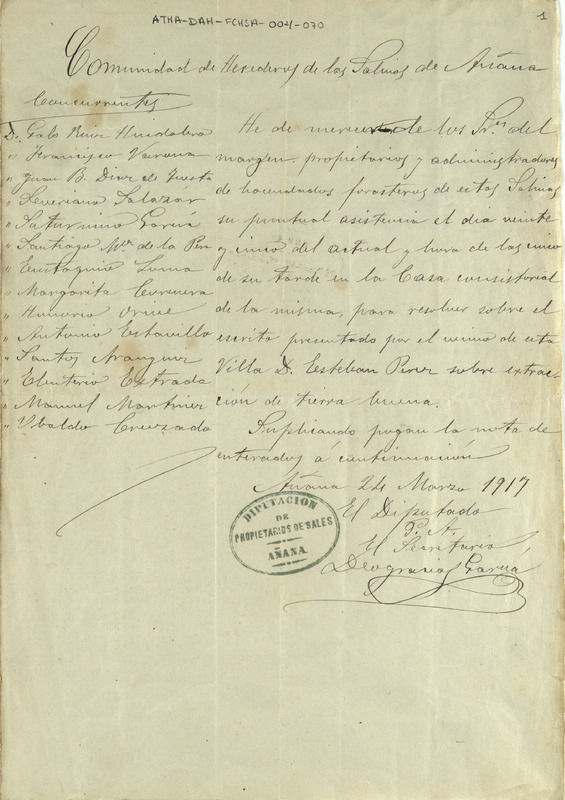 ATHA-DAH-FCHSA-004-070
1
Comunidad de Herederos de las Salinas de Añana
Concurrentes
D. Galo Ruiz Huidobro
" Francisco Varona
" Juan B. Diaz de Tuesta
" Severiano Salazar
" Saturnino García
" Santiago Mª de la Peña
" Eustaquio
" Margarita
" Honorio Orive
" Antonio Estavillo
" Santos Aranguiz
" Eleuterio Estrada
" Manuel Martinez
" Ybaldo Cruzado
He de merecer de los Sres del
margen, propietarios y administradores
de hacendados forasteros de estas Salinas
su puntual asistencia el dia veinte
y cinco del actual y hora de las cinco
de su tarde en la Casa consistorial
de la misma, para resolver sobre el
escrito presentado por el vecino de esta
Villa D. Esteban Perez sobre extrac-
ción de tierra buena.
Suplicando pogan la nota de
enterados á continuación
Añana 24 Marzo 1917
El Diputado
P. A.
El Secretario
Deogracias García
DIPUTACION
DE
PROPIETARIOS DE SALES
AÑANA